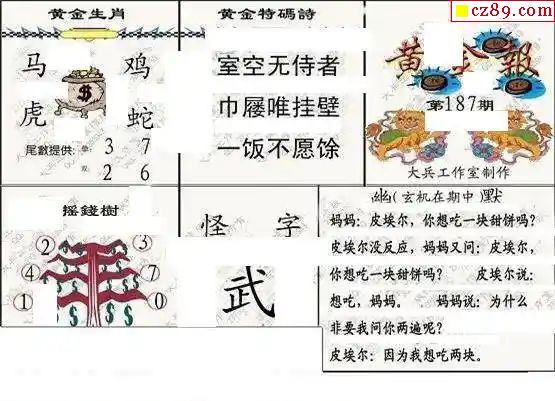 cz89.com
黄金生肖
马 鸡
虎 蛇
$
尾數提供: 单 3 7
双 2 6
黄金特碼詩
室空无侍者
巾屦唯挂壁
一饭不愿馀
黄金報
第187期
大兵工作室制作
摇錢樹
2 3
4 7
1 0
怪 字
武
幽(玄机在期中)默
妈妈：皮埃尔，你想吃一块甜饼吗？
皮埃尔没反应，妈妈又问：皮埃尔，
你想吃一块甜饼吗？ 皮埃尔说：
想吃，妈妈。 妈妈说：为什么
非要我问你两遍呢？
皮埃尔：因为我想吃两块。